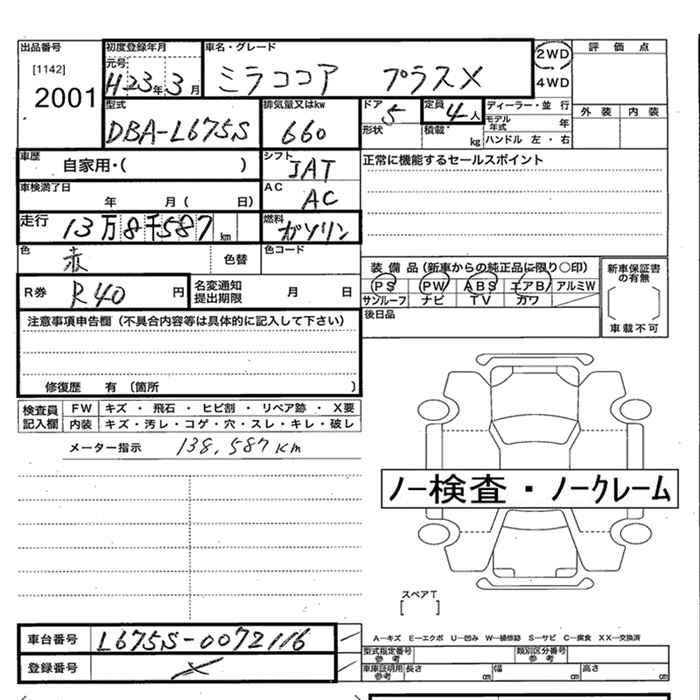 出品番号 初度登録年月 車名・グレード 2WD 評価点
[1142] 元号 H23年3月 ミラココア プラスX 4WD
2001 外装 内装
型式 排気量又はkw ドア 5 定員 4人 ディーラー・並行
DBA-L675S 660 形状 積載 kg モデル年式 年
ハンドル 左・右
車歴 自家用・( ) シフト JAT 正常に機能するセールスポイント
車検満了日 年 月( 日) AC AC
走行 13万8千587km 燃料 ガソリン
色 赤 色替 色コード
装備品(新車からの純正品に限り○印) 新車保証書の有無
PS PW ABS エアB アルミW
サンルーフ ナビ TV カワ [ ]
後日品 車載不可
R券 R40円 名変通知提出期限 月 日
注意事項申告欄(不具合内容等は具体的に記入して下さい)
修復歴 有 (箇所 )
検査員記入欄 FW キズ・飛石・ヒビ割・リペア跡・X要
内装 キズ・汚レ・コゲ・穴・スレ・キレ・破レ
メーター指示 138,587km
ノー検査・ノークレーム
スペアT
[ ]
車台番号 L675S-0072116
A―キズ E―エクボ U―凹み W―補修跡 S―サビ C―腐食 XX―交換済
登録番号 ×
型式指定番号 参考 類別区分番号 参考
車庫証明用 参考 長さ cm 幅 cm 高さ cm